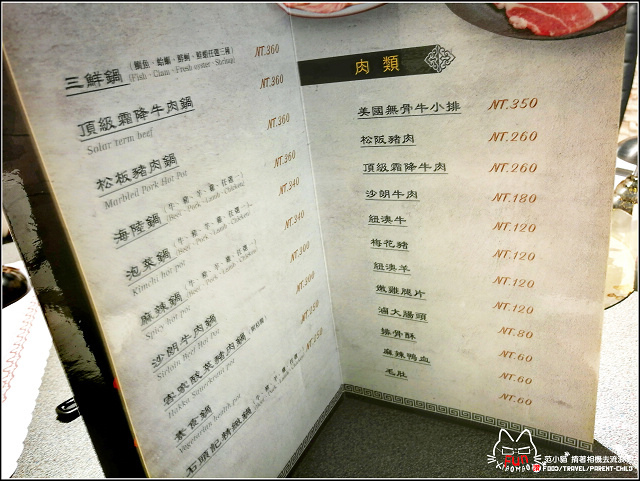 三鮮鍋(鯛魚、蛤蠣、鮮蚵、鮮蝦任選三種) NT.360
(Fish、Clam、Fresh oyster、Shrimp)
頂級霜降牛肉鍋 NT.360
Solar term beef
松板豬肉鍋 NT.360
Marbled Pork Hot Pot
海陸鍋(牛、豬、羊、雞、任選一) NT.360
(Beef、Pork、Lamb、Chicken)
泡菜鍋(牛、豬、羊、雞、任選一) NT.340
Kimchi hot pot (Beef、Pork、Lamb、Chicken)
麻辣鍋(牛、豬、羊、雞、任選一) NT.340
Spicy hot pot (Beef、Pork、Lamb、Chicken)
沙朗牛肉鍋 NT.300
Sirloin Beef Hot Pot
客家酸菜豬肉鍋 NT.300
Hakka Sauerkraut pot
素食鍋
Vegetarian health pot
石頭記精緻鍋(牛、豬、羊、雞、任選一)
肉類
美國無骨牛小排 NT.350
松阪豬肉 NT.260
頂級霜降牛肉 NT.260
沙朗牛肉 NT.180
紐澳牛 NT.120
梅花豬 NT.120
紐澳羊 NT.120
嫩雞腿片 NT.120
滷大腸頭 NT.80
排骨酥 NT.60
麻辣鴨血 NT.60
毛肚 NT.60
FUN
范小貓 揹著相機去流浪
FOOD/TRAVEL/PARENT-CHILD